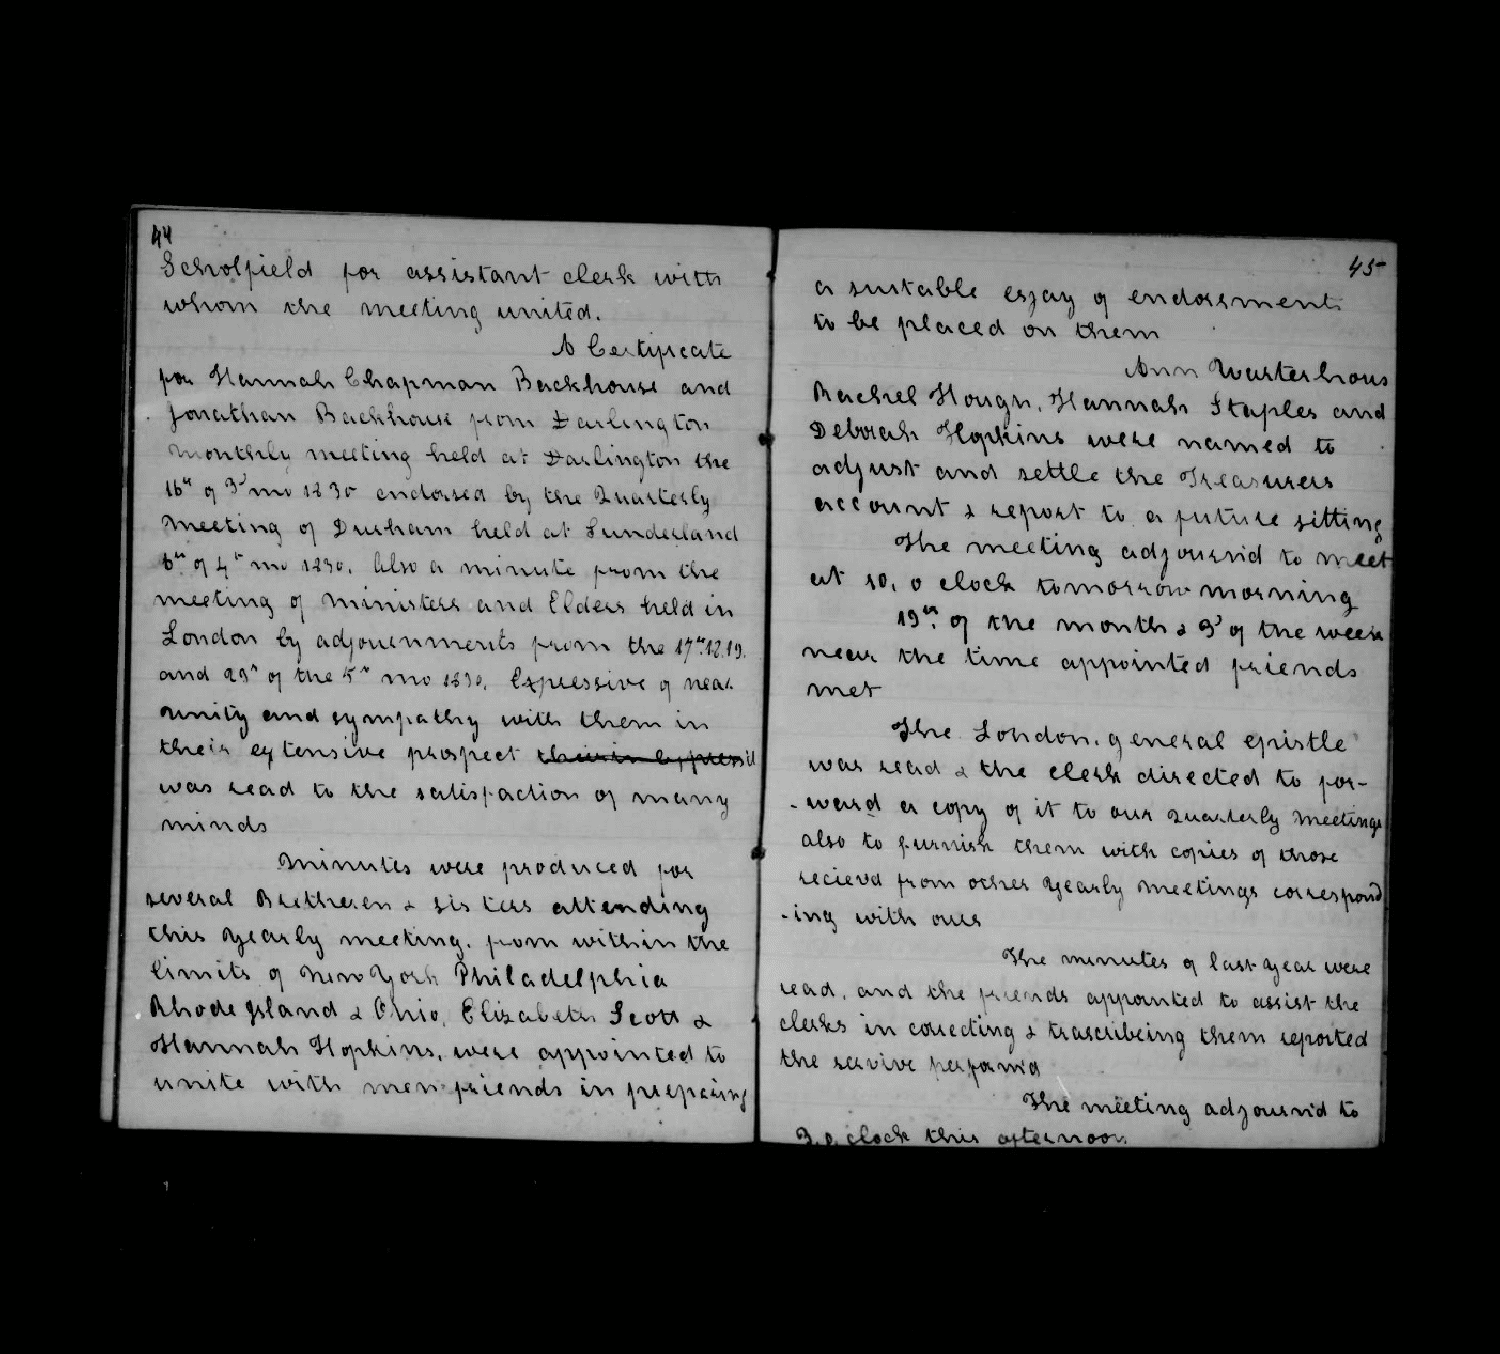 44
Scholfield for assistant clerk with
whom the meeting united.
A Certificate
for Hannah Chapman Backhouse and
Jonathan Backhouse from Darlington
monthly meeting held at Darlington the
16th of 3d mo 1830 endorsed by the Quarterly
meeting of Durham held at Sunderland
6th of 4th mo 1830. Also a minute from the
meeting of ministers and Elders held in
London by adjournments from the 17th.18.19.
and 29th of the 5th mo 1830. Expressive of near
unity and sympathy with them in
their extensive prospect
was read to the satisfaction of many
minds
Minutes were produced for
several Brethren & sisters attending
this yearly meeting. from within the
limits of New York Philadelphia
Rhode Island & Ohio, Elizabeth Scott &
Hannah Hopkins, were appointed to
unite with men friends in prepairing
45
a suitable essay of endorsment
to be placed on them
Ann Waterhous
Rachel Hough, Hannah Staples and
Deborah Hopkins were named to
adjust and settle the Treasurers
account & report to a future sitting
The meeting adjournd to meet
at 10, o clock tomorrow morning
19th. of the month & 3d of the week
near the time appointed friends
met
The London. general epistle
was read & the clerk directed to for-
-ward a copy of it to our Quarterly meetings
also to furnish them with copies of those
recievd from other yearly meetings correspond
-ing with ours
The minutes of last year were
read, and the friends appointed to assist the
clerks in collecting & trascribeing them reported
the servive performd
The meeting adjournd to
3. o. clock this afternoon.